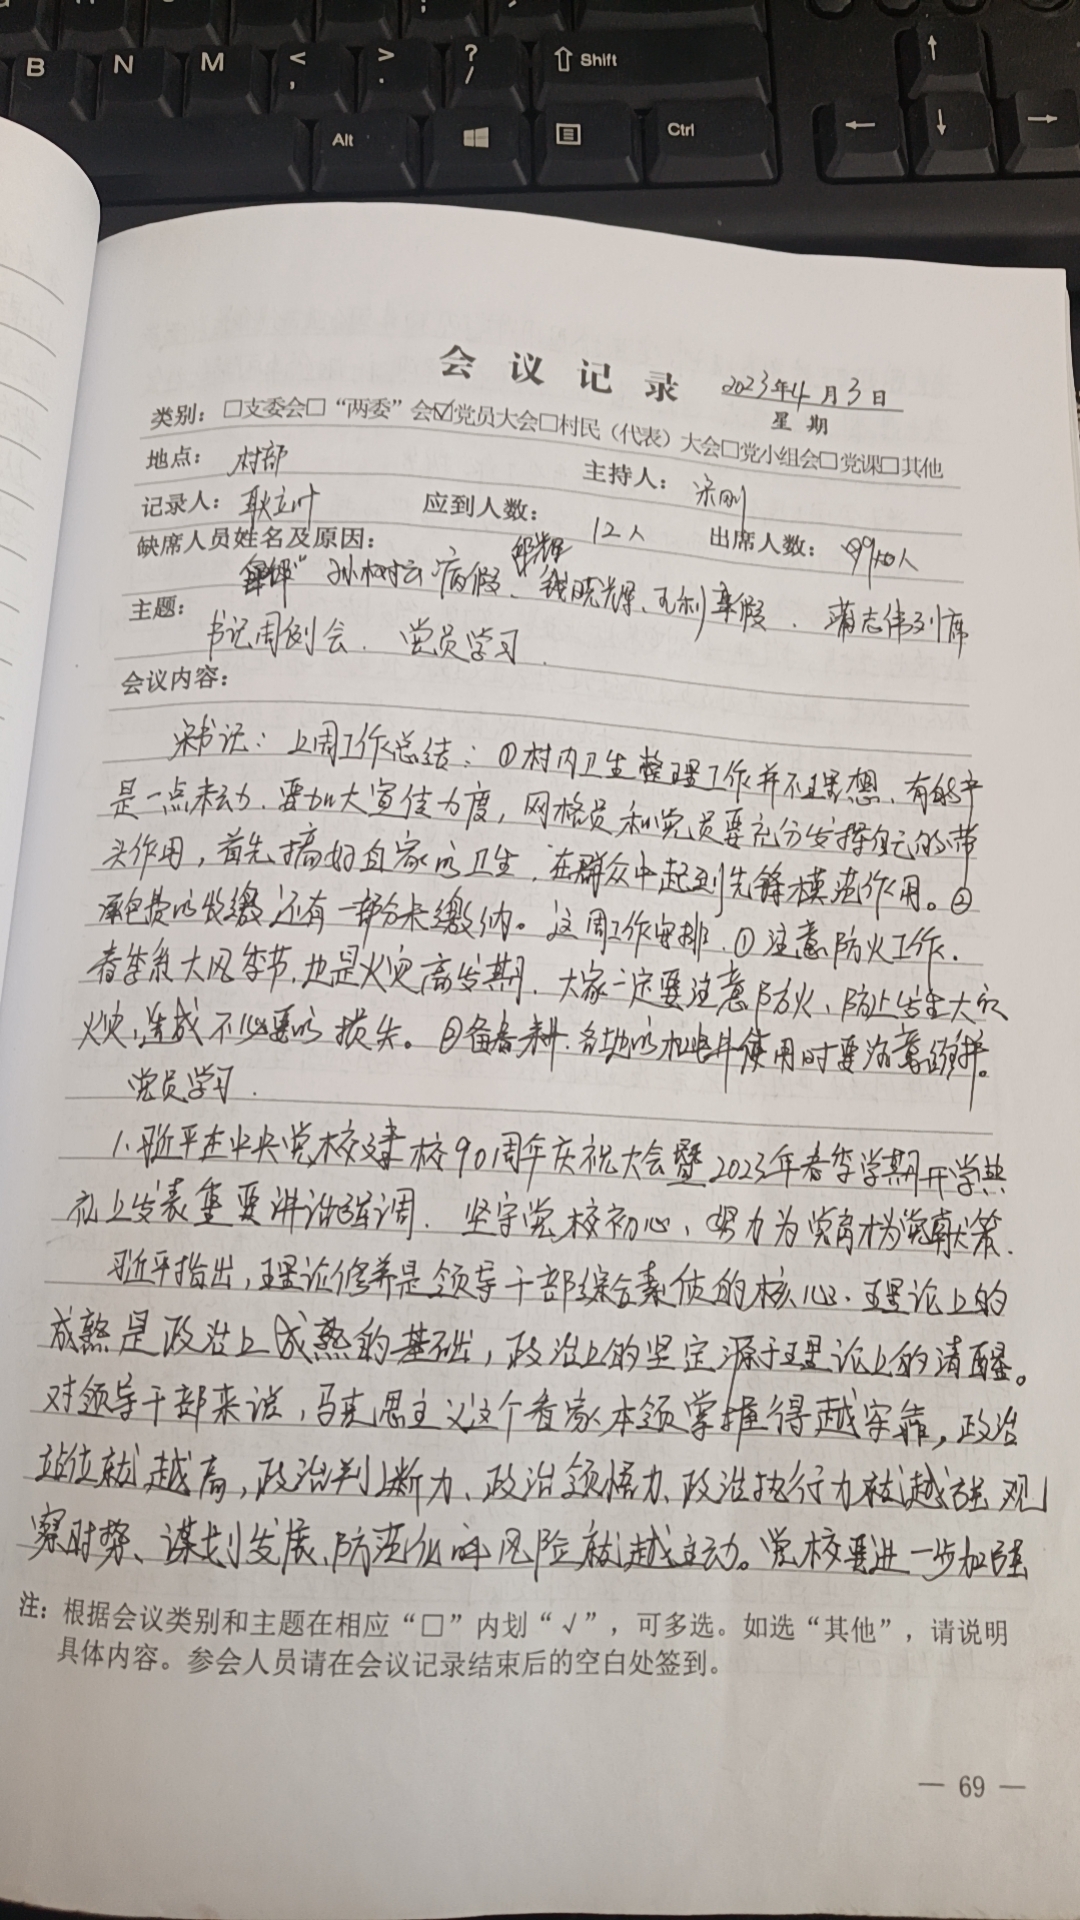 B N M < , > . ? / Shift ↑
Alt Ctrl ← ↓ →
会议记录 2023年4月3日
星期
类别：□支委会□“两委”会☑党员大会□村民（代表）大会□党小组会□党课□其他
地点：村部 主持人：宋刚
记录人：耿立叶 应到人数：12人 出席人数：人
缺席人员姓名及原因：
孙树云病假、钱晓辉、事假、蒲志伟列席
主题：书记周例会、党员学习.
会议内容：
宋书记：上周工作总结：①村内卫生整理工作并不理想，有的户
是一点未动.要加大宣传力度，网格员和党员要充分发挥自己的带
头作用，首先搞好自家的卫生.在群众中起到先锋模范作用。②
承包费的收缴还有一部分未缴纳。这周工作安排.①注意防火工作.
春季系大风季节,也是火灾高发期.大家一定要注意防火、防止发生大的
火灾,造成不必要的损失。②备春耕.各地的机电井使用时要注意维护。
党员学习.
1.习近平在中央党校建校90周年庆祝大会暨2023年春季学期开学典
礼上发表重要讲话强调.坚守党校初心、努力为党育才为党献策.
习近平指出,理论修养是领导干部综合素质的核心.理论上的
成熟是政治上成熟的基础,政治上的坚定源于理论上的清醒。
对领导干部来说,马克思主义这个看家本领掌握得越牢靠,政治
站位就越高,政治判断力、政治领悟力、政治执行力就越强 观
察时势、谋划发展、防范化解风险就越主动。党校要进一步加强
注：根据会议类别和主题在相应“□”内划“√”，可多选。如选“其他”，请说明
具体内容。参会人员请在会议记录结束后的空白处签到。
— 69 —